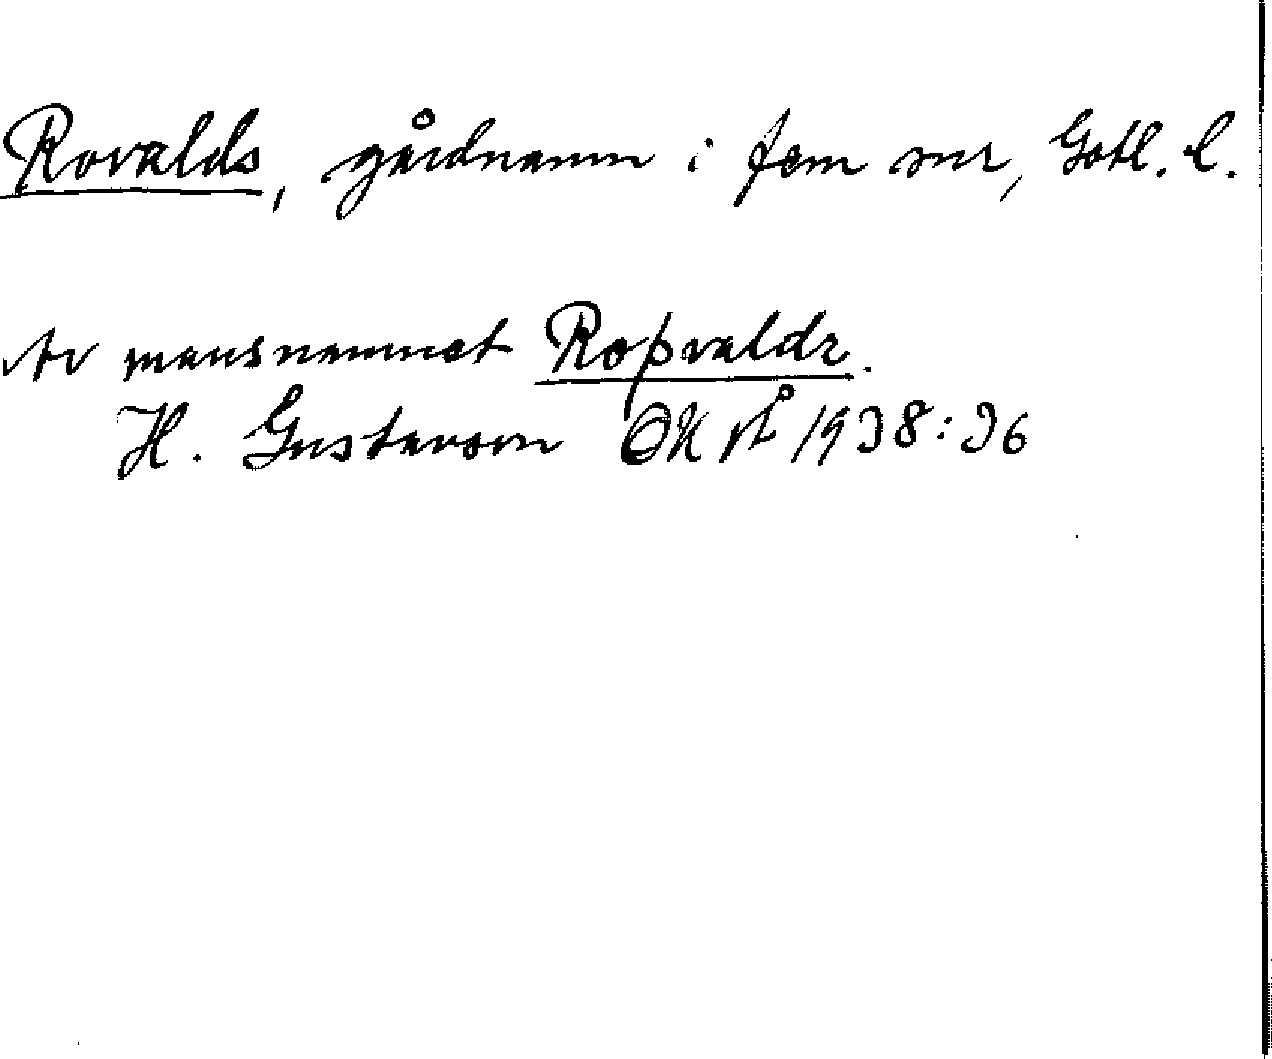 Rovalds, gårdnamn i fem snr, Gotl. l.
Av mansnamnet Roþvaldr.
H. Gustavson GK på 1938:36